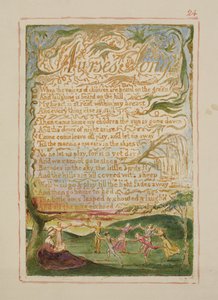 24
Nurse's Song
When the voices of children are heard on the green
And laughing is heard on the hill,
My heart is at rest within my breast
And every thing else is still
Then come home my children, the sun is gone down
And the dews of night arise
Come come leave off play, and let us away
Till the morning appears in the skies
No no let us play, for it is yet day
And we cannot go to sleep
Besides in the sky, the little birds fly
And the hills are all coverd with sheep
Well well go & play till the light fades away
And then go home to bed
The little ones leaped & shouted & laugh'd
echoed